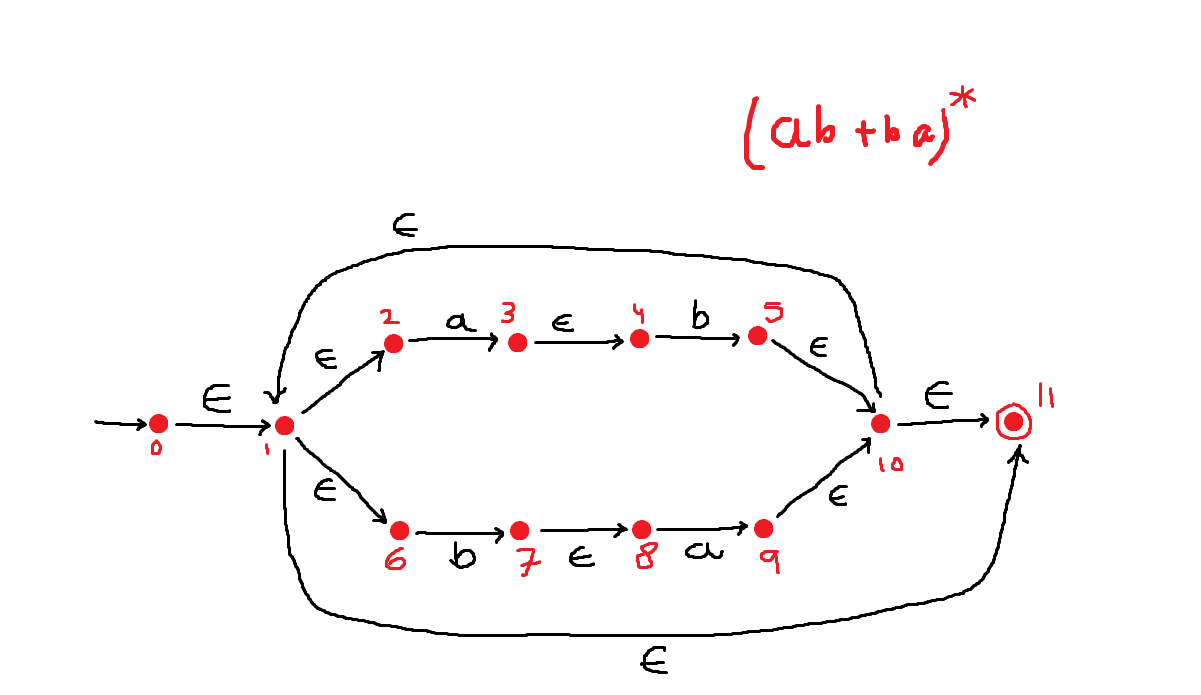 (ab + ba)*
∈
2 a 3 ∈ 4 b 5
∈ ∈
∈ ∈ 11
0 1 10
∈ ∈
6 b 7 ∈ 8 a 9
∈